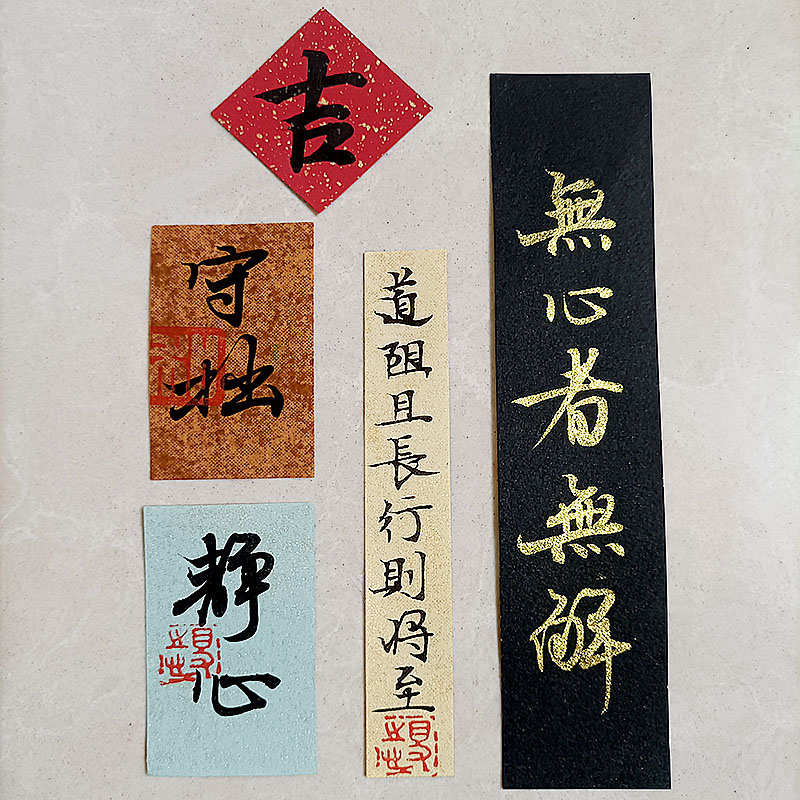 吉
守拙
静心
道阻且長行則将至
無心者無解